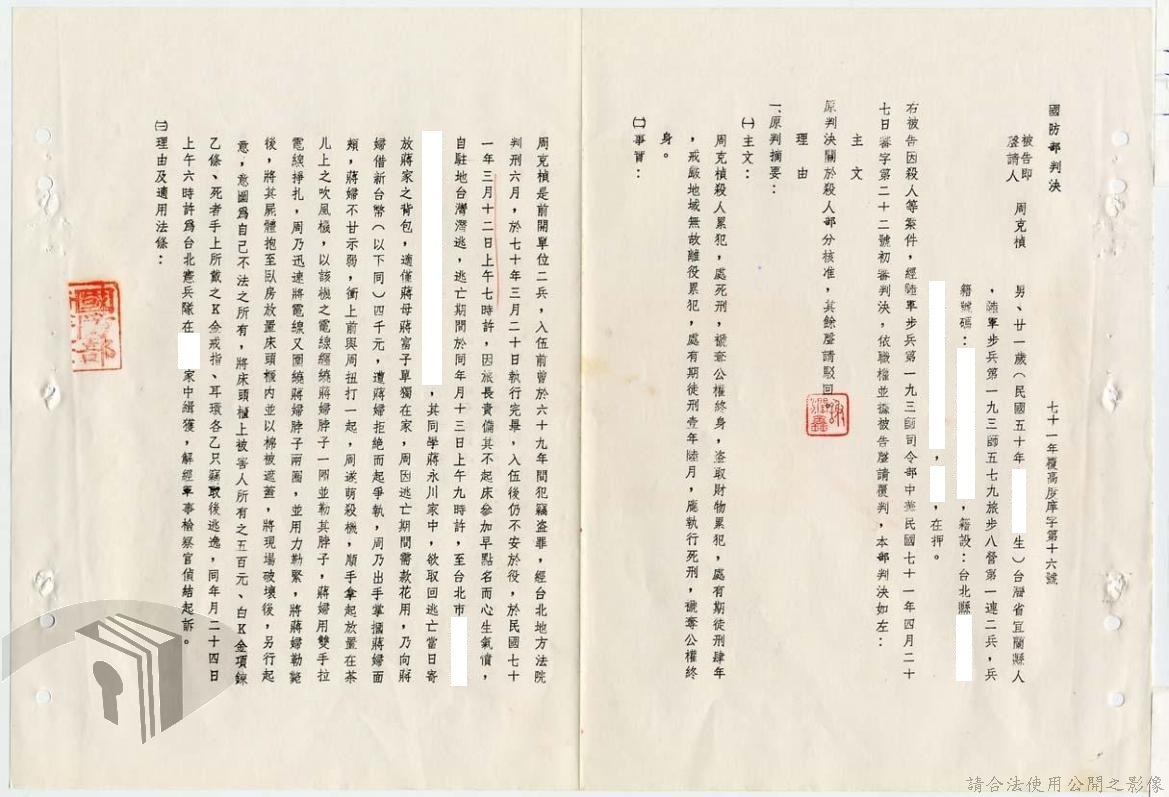 國防部判決
七十一年覆高度庠字第十六號
被告即
聲請人　周克楨　男、廿一歲（民國五十年　生）台灣省宜蘭縣人
，陸軍步兵第一九三師五七九旅步八營第一連二兵，兵
籍號碼：　，籍設：台北縣
　，　，在押。
右被告因殺人等案件，經陸軍步兵第一九三師司令部中華民國七十一年四月二十
七日審字第二十二號初審判決，依職權並據被告聲請覆判，本部判決如左：
主文
原判決關於殺人部分核准，其餘聲請駁回。
理由
一、原判摘要：
㈠主文：
周克楨殺人累犯，處死刑，褫奪公權終身，盜取財物累犯，處有期徒刑肆年
，戒嚴地域無故離役累犯，處有期徒刑壹年陸月，應執行死刑，褫奪公權終
身。
㈡事實：
周克楨是前開單位二兵，入伍前曾於六十九年間犯竊盜罪，經台北地方法院
判刑六月，於七十年三月二十日執行完畢，入伍後仍不安於役，於民國七十
一年三月十二日上午七時許，因旅長責備其不起床參加早點名而心生氣憤，
自駐地台灣潛逃，逃亡期間於同年月十三日上午九時許，至台北市
　，其同學蔣永川家中，欲取回逃亡當日寄
放蔣家之背包，適僅蔣母蔣富子單獨在家，周因逃亡期間需款花用，乃向蔣
婦借新台幣（以下同）四千元，遭蔣婦拒絕而起爭執，周乃出手掌摑蔣婦面
頰，蔣婦不甘示弱，衝上前與周扭打一起，周遂萌殺機，順手拿起放置在茶
几上之吹風機，以該機之電線纏繞蔣婦脖子一圈並勒其脖子，蔣婦用雙手拉
電線掙扎，周乃迅速將電線又圍繞蔣婦脖子兩圈，並用力勒緊，將蔣婦勒斃
後，將其屍體抱至臥房放置床頭櫃內並以棉被遮蓋，將現場破壞後，另行起
意，意圖為自己不法之所有，將床頭櫃上被害人所有之五百元、白K金項鍊
乙條、死者手上所戴之K金戒指、耳環各乙只竊取後逃逸，同年月二十四日
上午六時許為台北憲兵隊在　家中緝獲，解經軍事檢察官偵結起訴。
㈢理由及適用法條：
國防部
請合法使用公開之影像